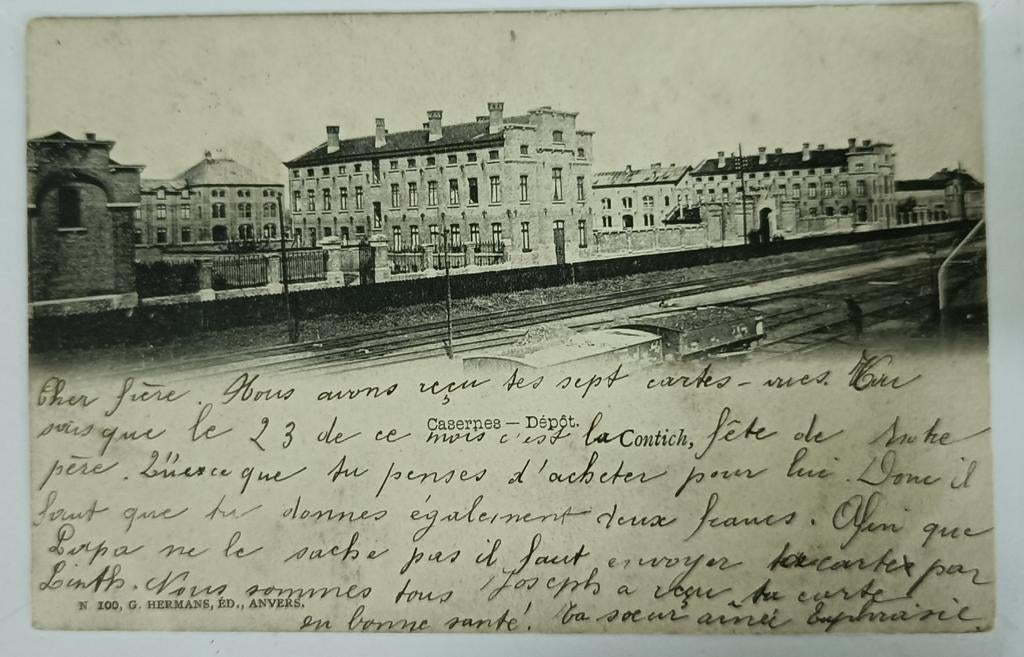 Cher frère. Nous avons reçu tes sept cartes-vues. Tu
sais que le 23 de ce mois c'est la fête de Notre
Casernes – Dépôt.
Contich,
père. Qu'est ce que tu penses d'acheter pour lui. Donc il
faut que tu donnes également deux francs. Afin que
Papa ne le sache pas il faut envoyer ta carte par
Linth. Nous sommes tous Joseph a reçu ta carte
N 100, G. HERMANS, ÉD., ANVERS.
en bonne santé! Ta sœur aînée Euphrasie